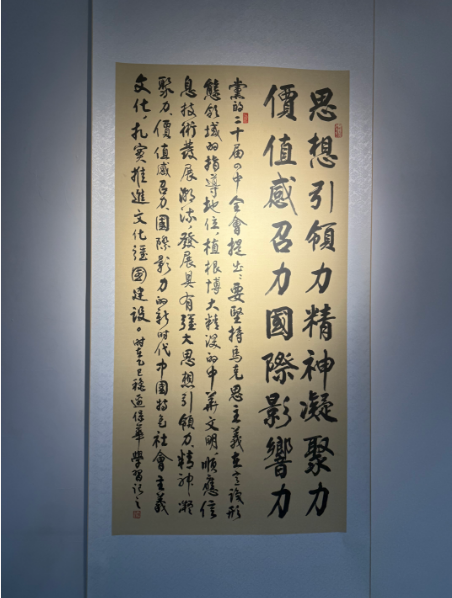 思想引領力精神凝聚力
價值感召力國際影響力
黨的二十届四中全會提出：要堅持馬克思主義在意識形
態領域的指導地位，植根博大精深的中華文明，順應信
息技術發展潮流，發展具有强大思想引領力、精神凝
聚力、價值感召力、國際影響力的新時代中國特色社會主義
文化，扎實推進文化强國建設。時在乙巳
學習記之